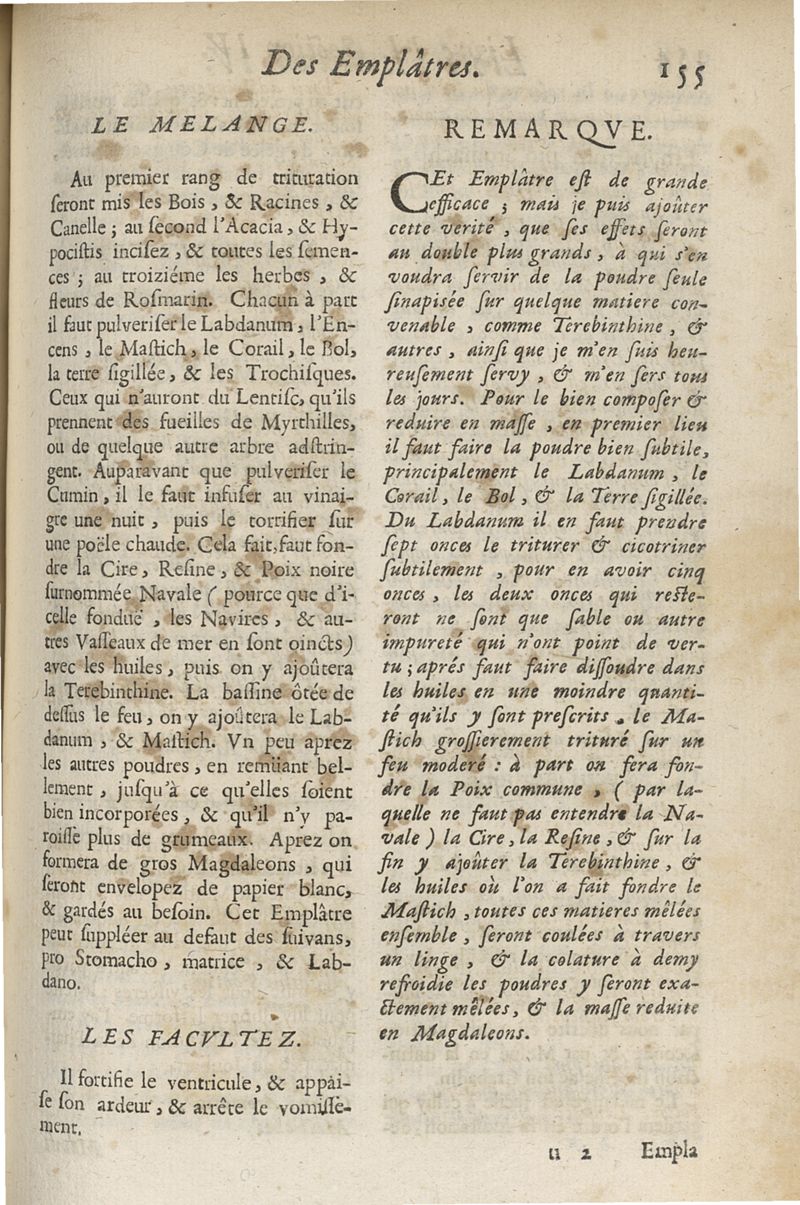 Des Emplâtres. 155
LE MELANGE.
Au premier rang de trituration
ſeront mis les Bois, & Racines, &
Canelle ; au ſecond l'Acacia, & Hy-
pociſtis inciſez, & toutes les ſemen-
ces ; au troiziéme les herbes, &
fleurs de Roſmarin. Chacun à part
il faut pulveriſer le Labdanum, l'En-
cens, le Maſtich, le Corail, le Bol,
la terre ſigillée, & les Trochiſques.
Ceux qui n'auront du Lentiſc, qu'ils
prennent des fueilles de Myrthilles,
ou de quelque autre arbre adſtrin-
gent. Auparavant que pulveriſer le
Cumin, il le faut infuſer au vinai-
gre une nuit, puis le torrifier ſur
une poële chaude. Cela fait, faut fon-
dre la Cire, Reſine, & Poix noire
ſurnommée Navale ( pource que d'i-
celle fonduë, les Navires, & au-
tres Vaſſeaux de mer en ſont oincts)
avec les huiles, puis on y ajoûtera
la Terebinthine. La baſſine ôtée de
deſſus le feu, on y ajoûtera le Lab-
danum, & Maſtich. Vn peu aprez
les autres poudres, en remüant bel-
lement, juſqu'à ce qu'elles ſoient
bien incorporées, & qu'il n'y pa-
roiſſe plus de grumeaux. Aprez on
formera de gros Magdaleons, qui
ſeront envelopez de papier blanc,
& gardés au beſoin. Cet Emplâtre
peut ſuppléer au defaut des ſuivans,
pro Stomacho, matrice, & Lab-
dano.
LES FACVLTEZ.
Il fortifie le ventricule, & appai-
ſe ſon ardeur, & arrête le vomiſſe-
ment.
REMARQVE.
CEt Emplâtre eſt de grande
efficace ; mais je puis ajoûter
cette verité, que ſes effets ſeront
au double plus grands, à qui s'en
voudra ſervir de la poudre ſeule
ſinapisée ſur quelque matiere con-
venable, comme Terebinthine, &
autres, ainſi que je m'en ſuis heu-
reuſement ſervy, & m'en ſers tous
les jours. Pour le bien compoſer &
reduire en maſſe, en premier lieu
il faut faire la poudre bien ſubtile,
principalement le Labdanum, le
Corail, le Bol, & la Terre ſigillée.
Du Labdanum il en faut prendre
ſept onces le triturer & cicotriner
ſubtilement, pour en avoir cinq
onces, les deux onces qui reſte-
ront ne ſont que ſable ou autre
impureté qui n'ont point de ver-
tu ; aprés faut faire diſſoudre dans
les huiles en une moindre quanti-
té qu'ils y ſont preſcrits, le Ma-
ſtich groſſierement trituré ſur un
feu moderé : à part on fera fon-
dre la Poix commune, ( par la-
quelle ne faut pas entendre la Na-
vale ) la Cire, la Reſine, & ſur la
fin y ajoûter la Terebinthine, &
les huiles où l'on a fait fondre le
Maſtich, toutes ces matieres mêlées
enſemble, ſeront coulées à travers
un linge, & la colature à demy
refroidie les poudres y ſeront exa-
ctement mêlées, & la maſſe reduite
en Magdaleons.
u 2 Empla